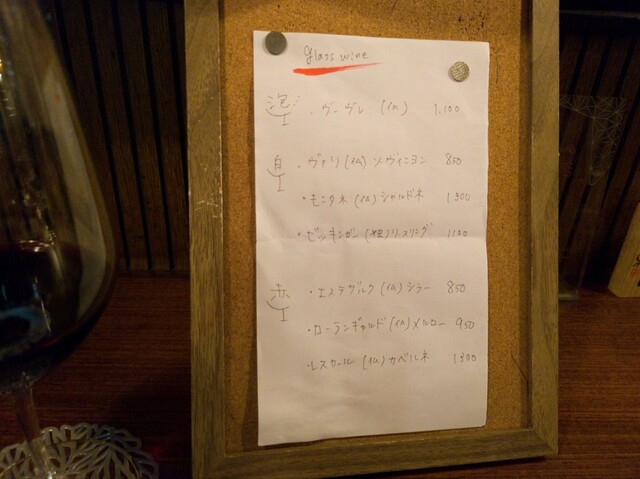 glass wine
泡 ・ヴーヴレ (仏) 1,100
白 ・ヴァリ (仏) ソーヴィニヨン 850
・モニタネ (仏) シャルドネ 1300
・ゼッキンガー (独) リースリング 1100
赤 ・エステザルク (仏) シラー 850
・ローランギャルド (仏) メルロー 950
・レスカール (仏) カベルネ 1300